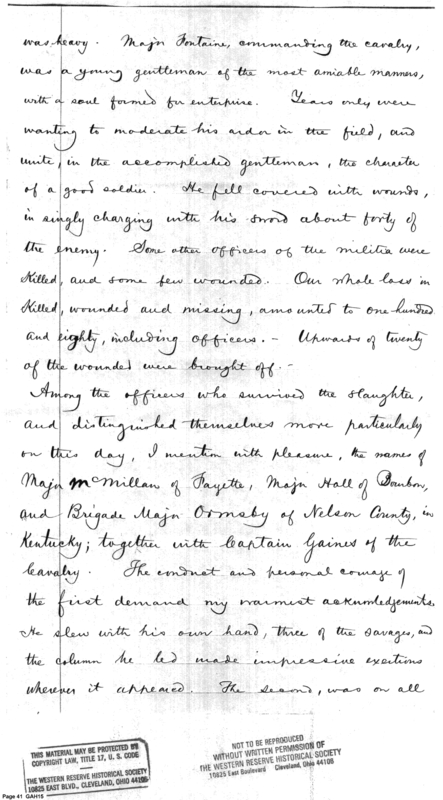 was heavy. Major Fontaine, commanding the cavalry,
was a young gentleman of the most amiable manners,
with a soul formed for enterprise. Years only were
wanting to moderate his ardor in the field, and
unite, in the accomplished gentleman, the character
of a good soldier. He fell covered with wounds,
in singly charging with his sword about forty of
the enemy. Some other officers of the militia were
Killed, and some few wounded. Our whole loss in
Killed, wounded and missing, amounted to one hundred
and eighty, including officers. - Upwards of twenty
of the wounded were brought off. -
Among the officers who survived the slaughter,
and distinguished themselves more particularly
on this day, I mention with pleasure, the names of
Major McMillan of Fayette, Major Hall of Bourbon,
and Brigade Major Ormsby of Nelson County, in
Kentucky; together with Captain Gaines of the
Cavalry. The conduct and personal courage of
the first demand my warmest acknowledgements.
He slew with his own hand, three of the savages, and
the column he led made impressive exertions
wherever it appeared. The second, was on all
THIS MATERIAL MAY BE PROTECTED BY
COPYRIGHT LAW, TITLE 17, U. S. CODE
THE WESTERN RESERVE HISTORICAL SOCIETY
10825 EAST BLVD., CLEVELAND, OHIO 44106
NOT TO BE REPRODUCED
WITHOUT WRITTEN PERMISSION OF
THE WESTERN RESERVE HISTORICAL SOCIETY
10825 East Boulevard Cleveland, Ohio 44106
Page 41 GAH15